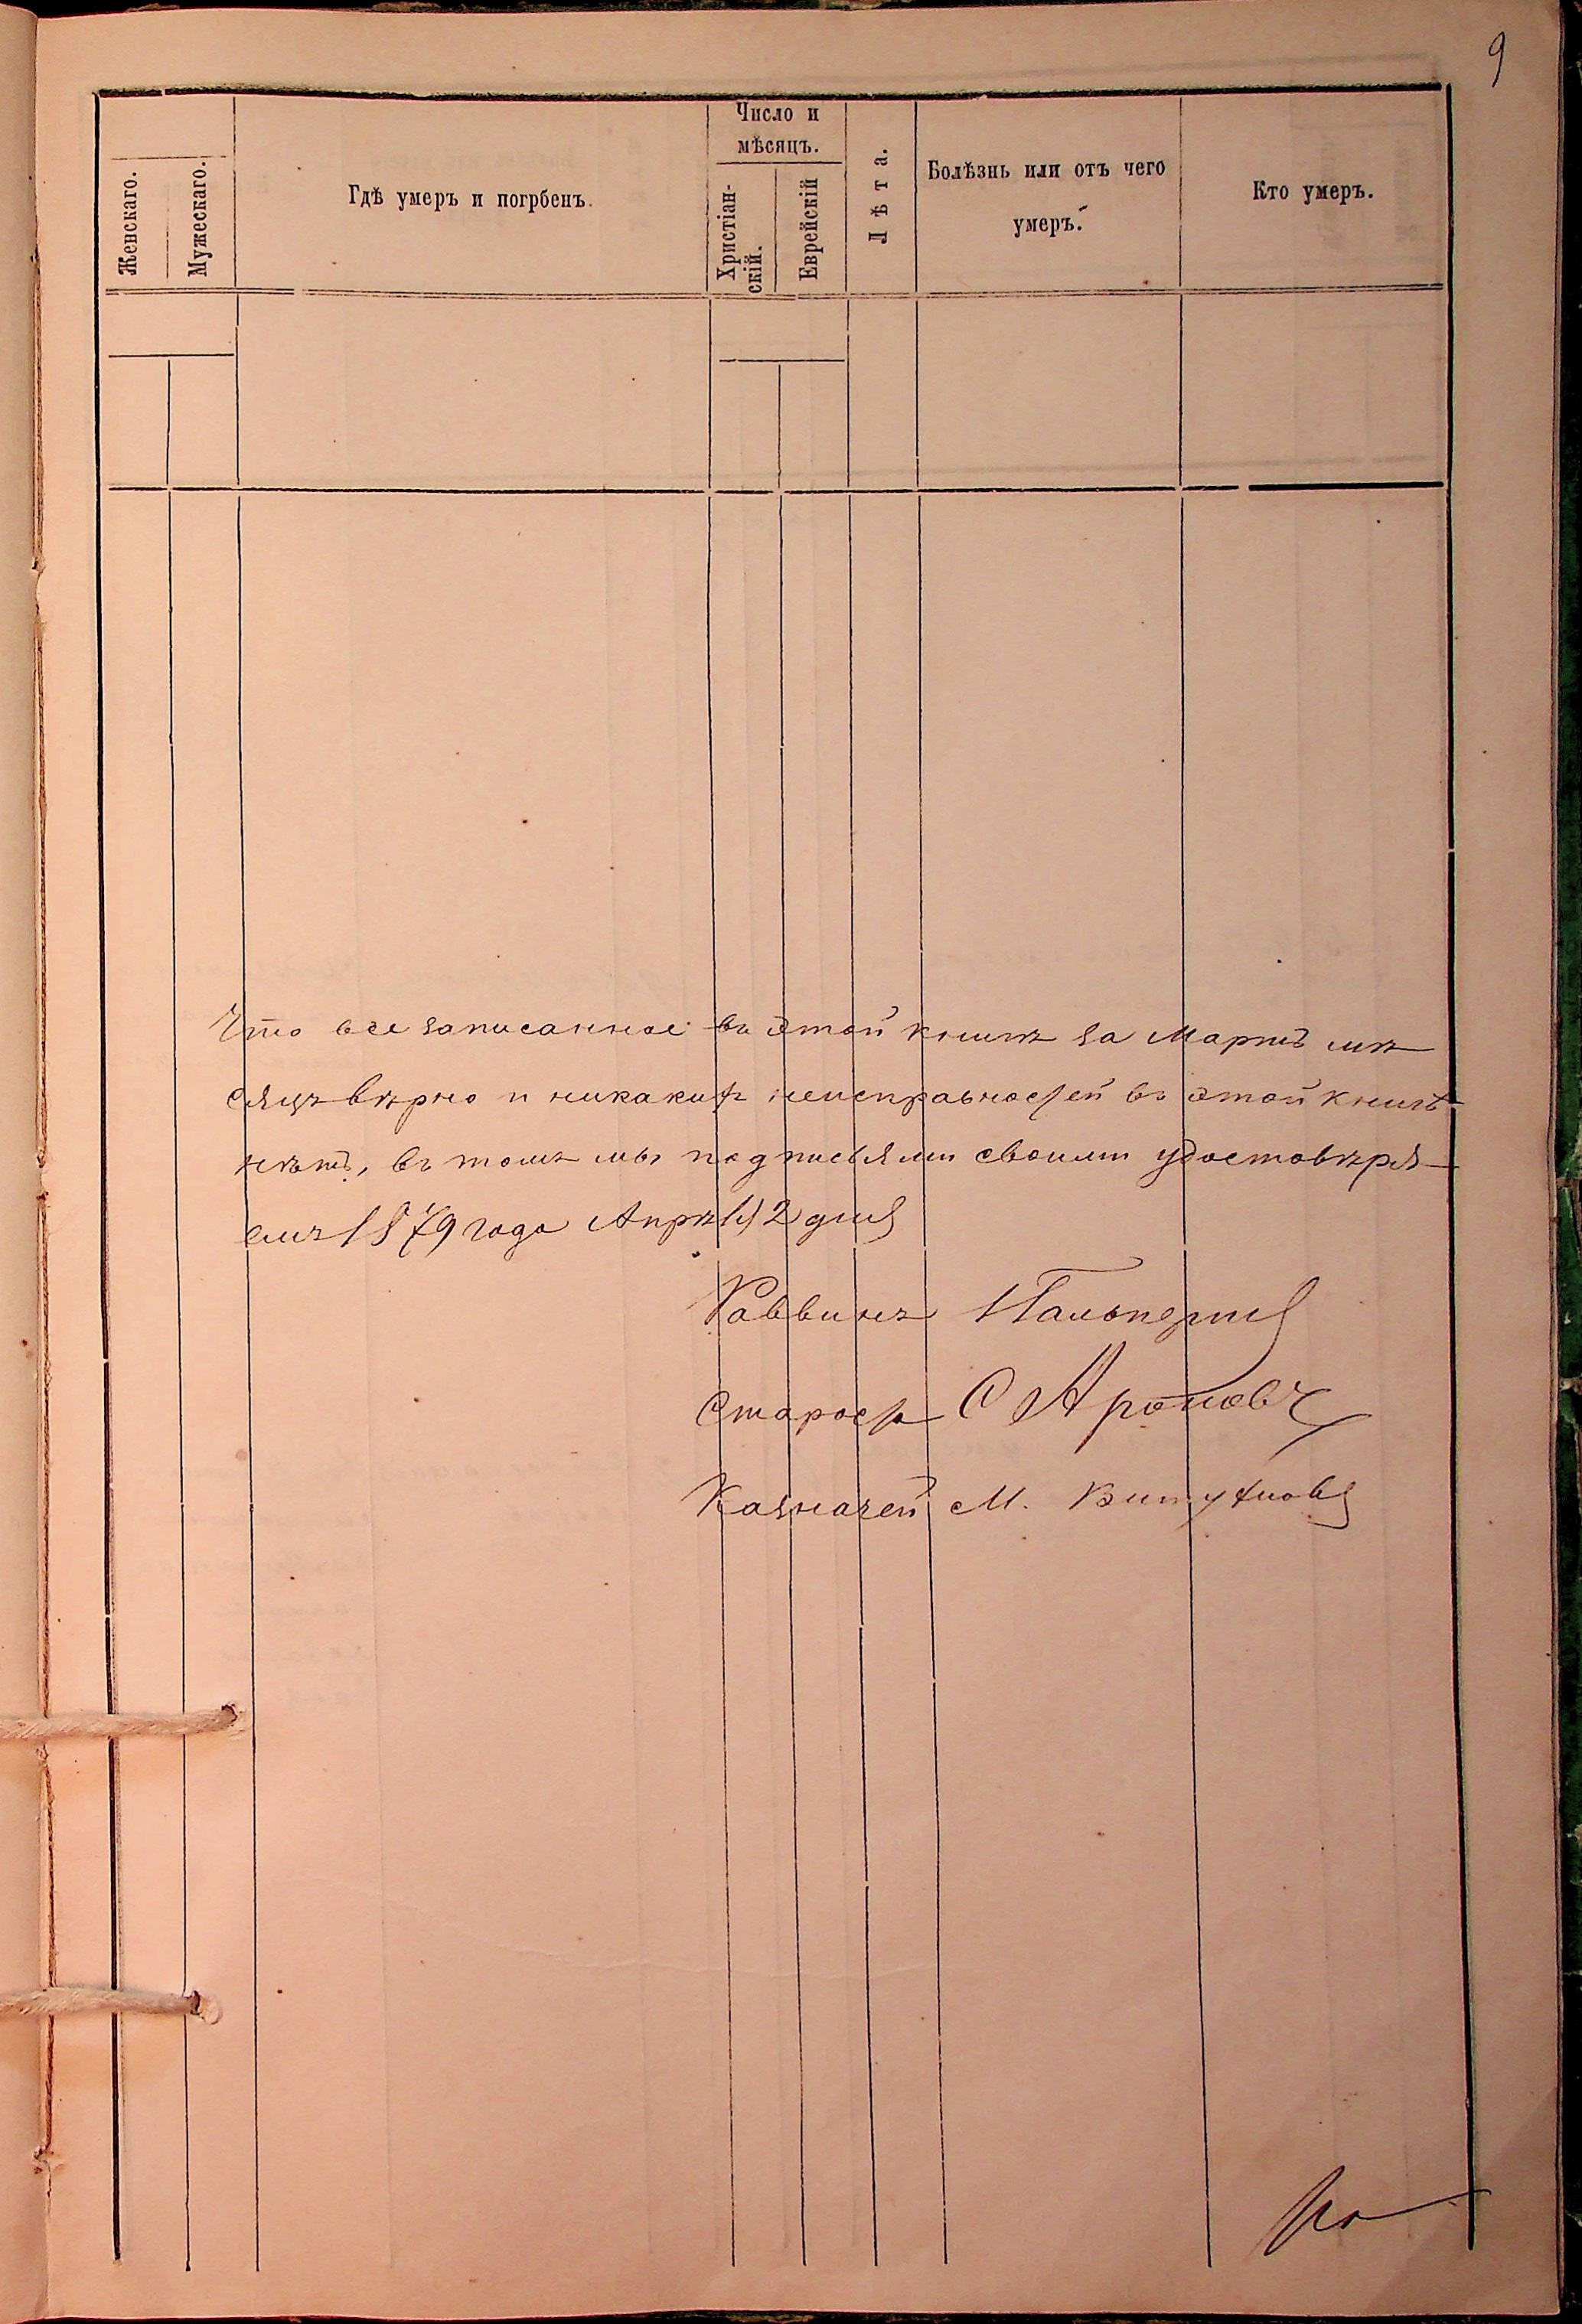 9
Женскаго.
Мужескаго.
Гдѣ умеръ и погрбенъ.
Число и
мѣсяцъ.
Христіан-
скій.
Еврейскій
Лѣта.
Болѣзнь или отъ чего
умеръ.
Кто умеръ.
Что все записанное въ этой книгѣ за Мартъ мѣ
сяцъ вѣрно и никакихъ неисправностей въ этой книгѣ
нѣтъ, въ томъ мы подписями своими удостовѣря-
емъ 1879 года Апрѣля 2 дня
Раввинъ Гальперин
Староста С Ароновъ
Казначей М.